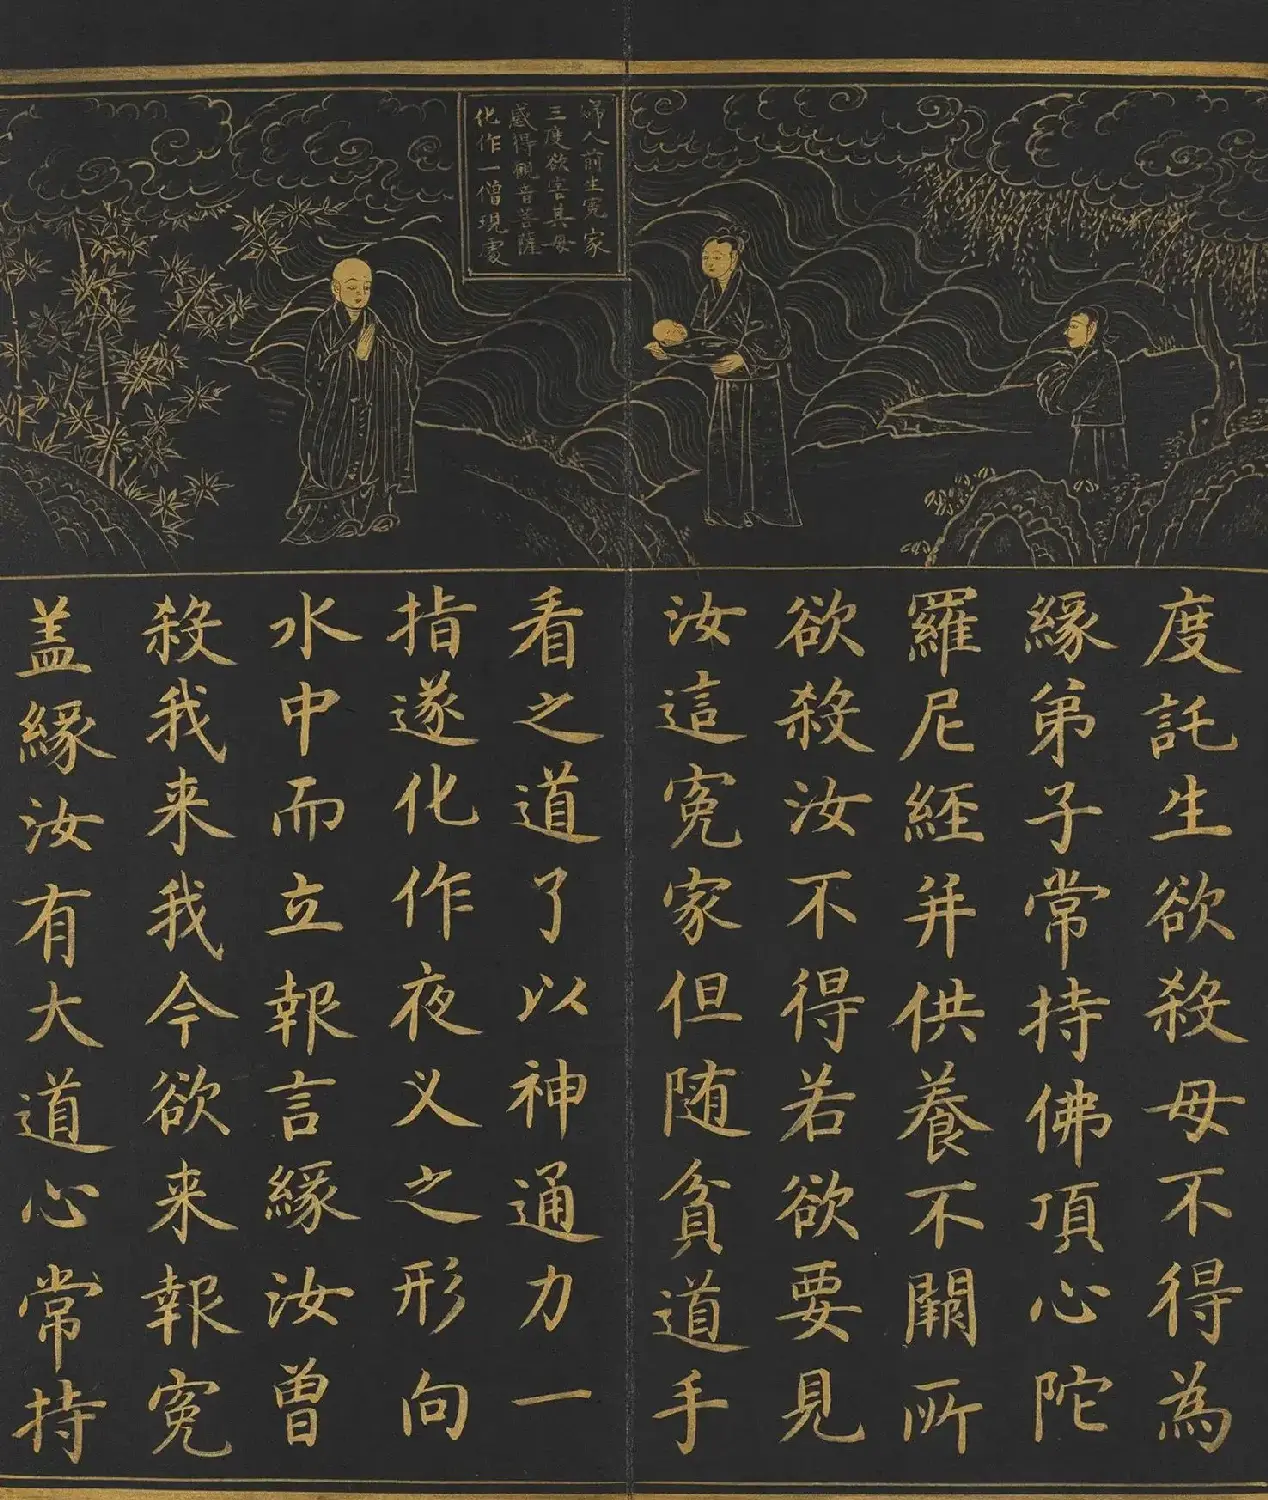 婦人前生冤家
三度欲害其母
感得觀音菩薩
化作一僧現處
度託生欲殺母不得為
緣弟子常持佛頂心陀
羅尼經并供養不闕所
欲殺汝不得若欲要見
汝這冤家但随貧道手
看之道了以神通力一
指遂化作夜义之形向
水中而立報言緣汝曾
殺我来我今欲来報冤
盖緣汝有大道心常持